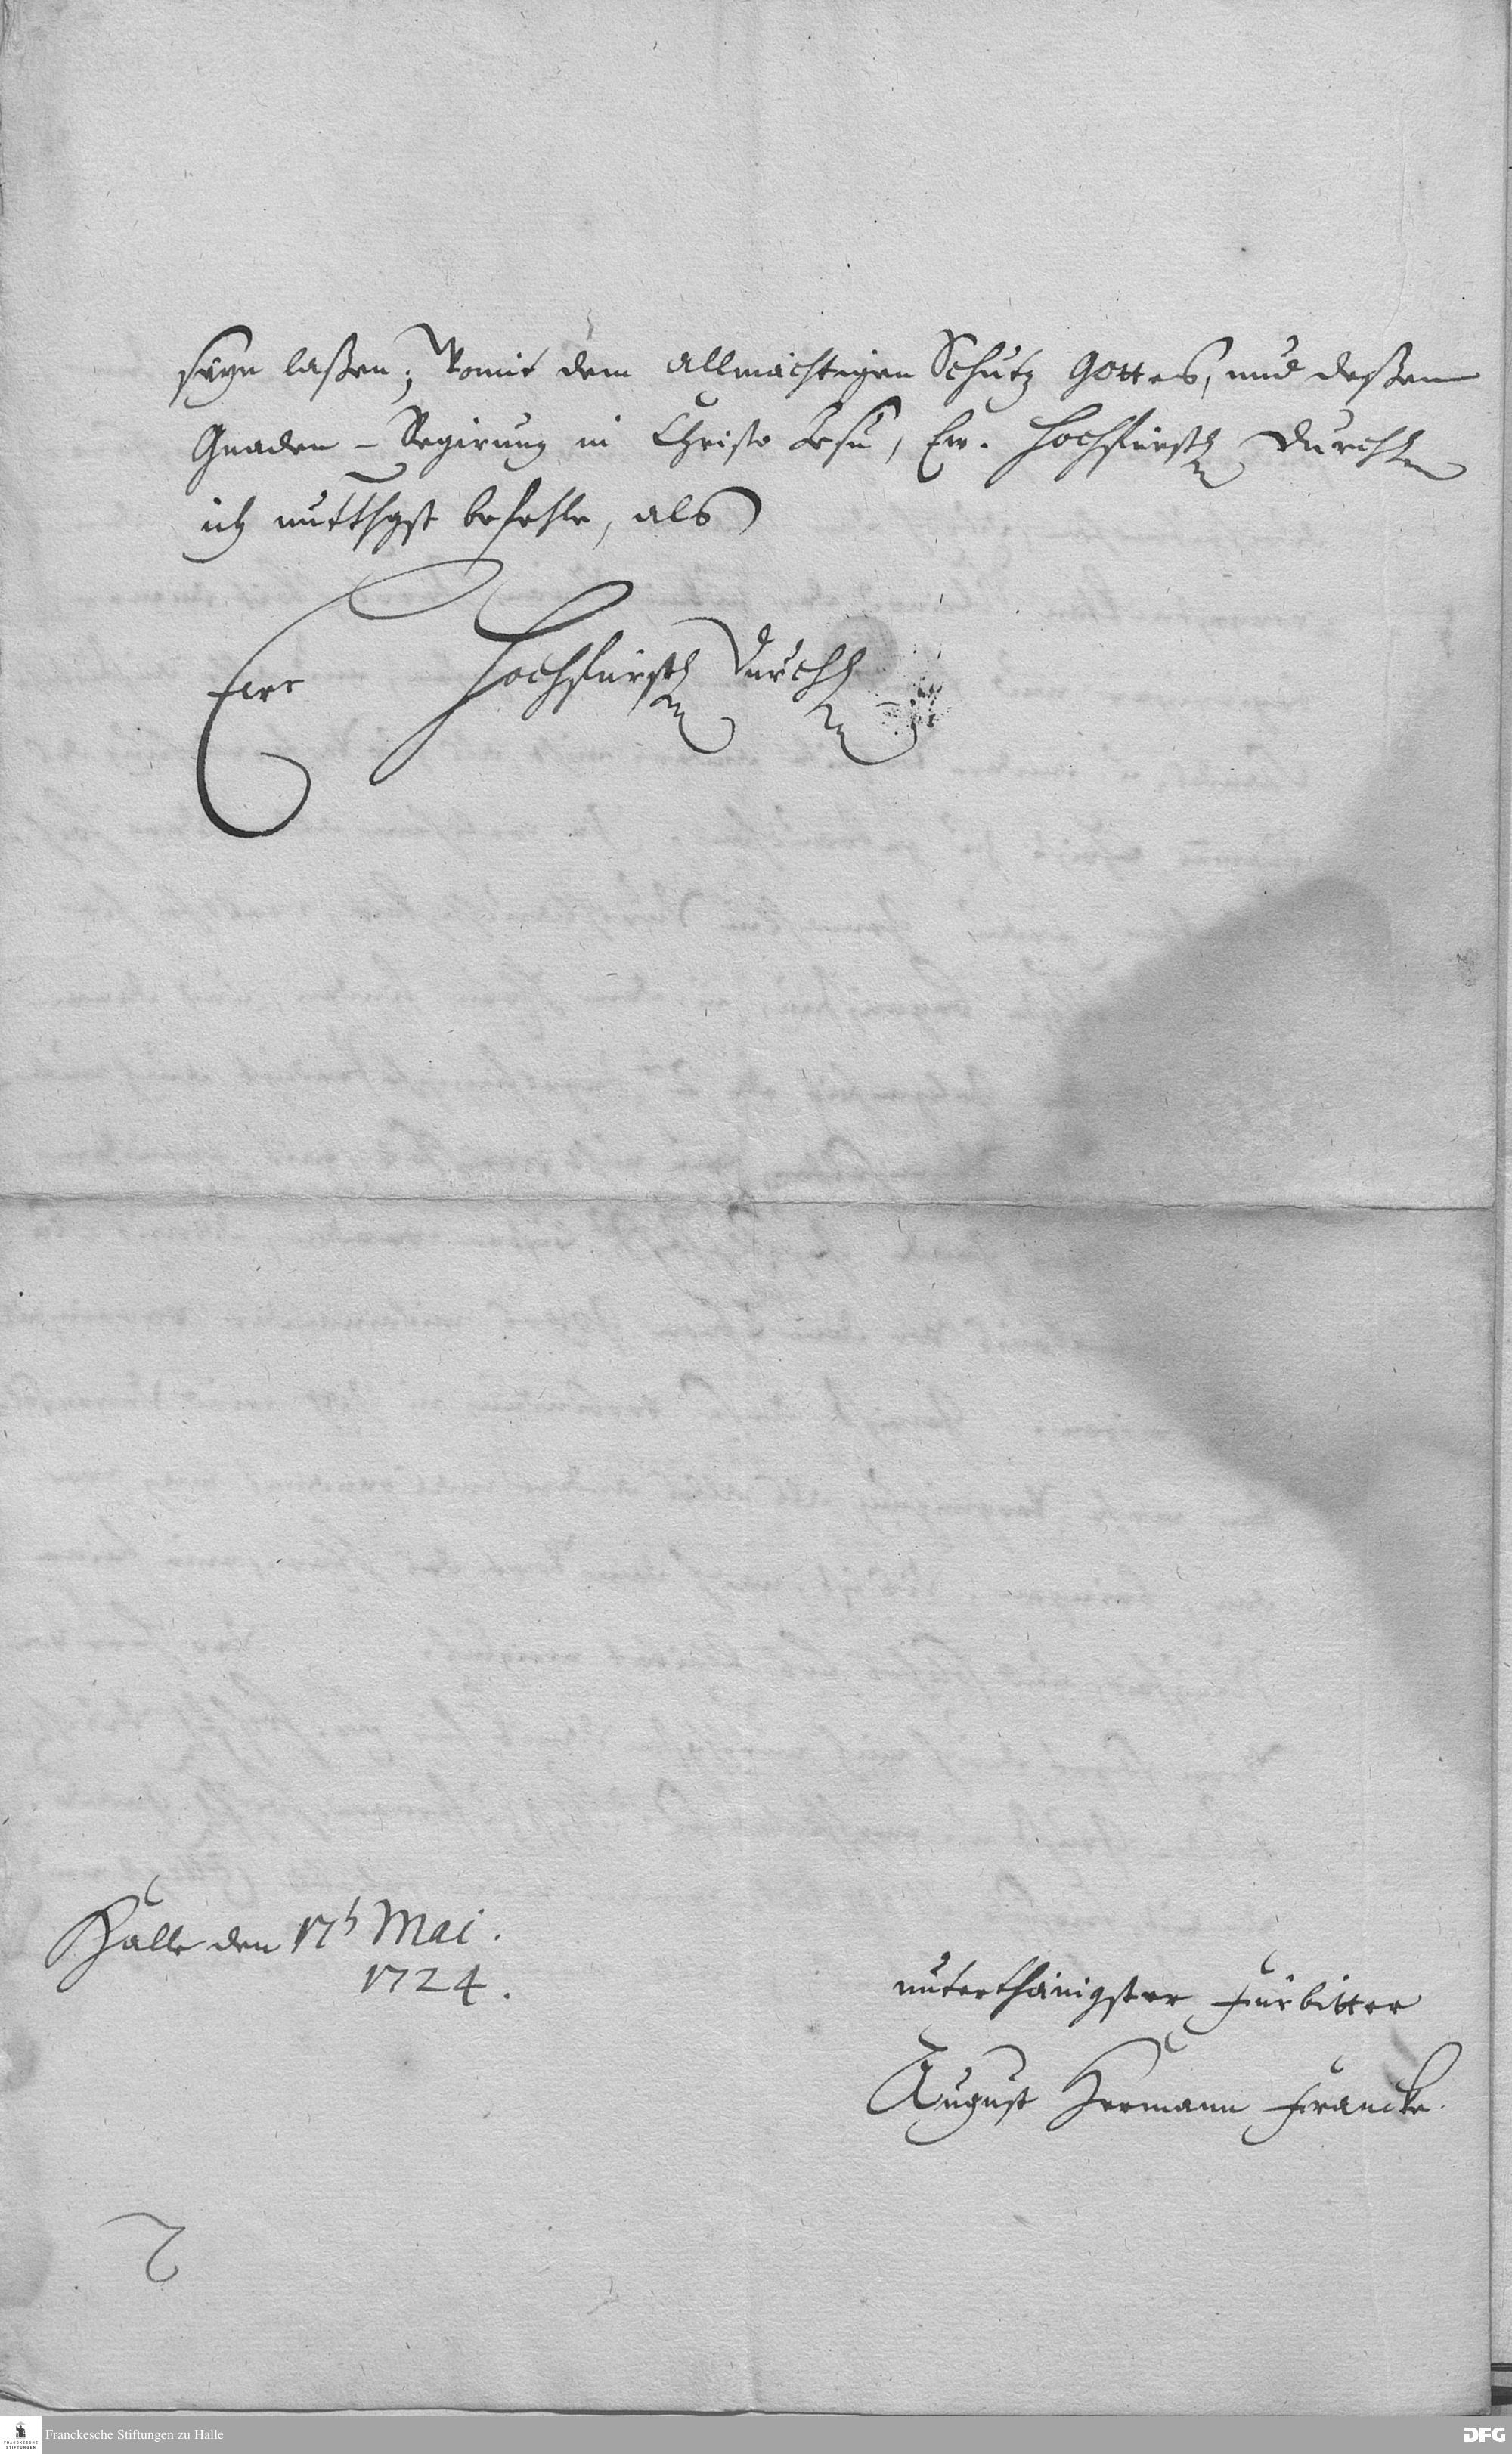 seyn laßen; Womit dem allmächtigen Schutz Gottes, und deßen
Gnaden-Regirung in Christo Jesu, Ew. Hochfürstl Durchl
ich untthgst befehle, als
Ewr Hochfürstl Durchl
Halle den 17ᵗ Mai.
1724.
unterthänigster Fürbitter
August Hermann Francke.
Franckesche Stiftungen zu Halle
DFG